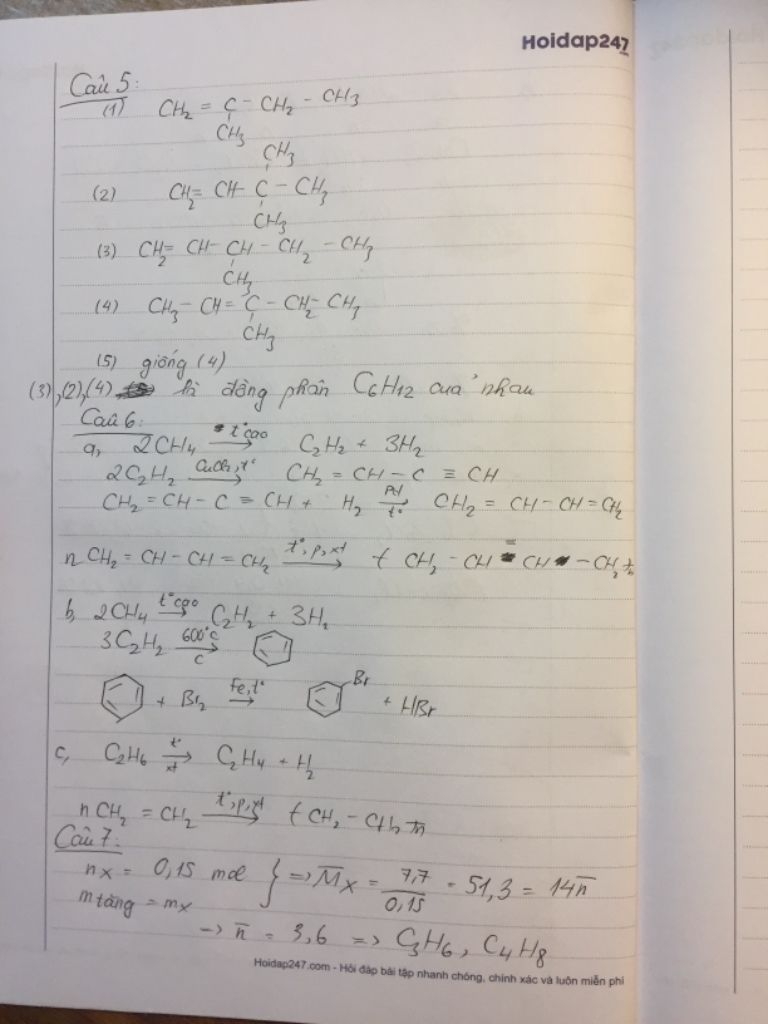 Hoidap247
Câu 5:
(1) CH2 = C - CH2 - CH3
CH3
CH3
(2) CH2 = CH - C - CH3
CH3
(3) CH2 = CH - CH - CH2 - CH3
CH3
(4) CH3 - CH = C - CH2 - CH3
CH3
(5) giống (4)
(3), (2), (4) là đồng phân C6H12 của nhau
Câu 6:
a, 2CH4 t° cao → C2H2 + 3H2
2C2H2 CuCl2, t° → CH2 = CH - C ≡ CH
CH2 = CH - C ≡ CH + H2 Pd t° → CH2 = CH - CH = CH2
n CH2 = CH - CH = CH2 t°, p, xt → ( CH2 - CH = CH - CH2 )n
b, 2CH4 t° cao → C2H2 + 3H2
3C2H2 600°C C →
Br
+ Br2 Fe, t° → + HBr
c, C2H6 t° xt → C2H4 + H2
n CH2 = CH2 t°, p, xt → ( CH2 - CH2 )n
Câu 7:
nX = 0,15 mol } => M̅X = 7,7 / 0,15 = 51,3 = 14n̅
m tăng = mX
→ n̅ = 3,6 => C3H6, C4H8
Hoidap247.com - Hỏi đáp bài tập nhanh chóng, chính xác và luôn miễn phí